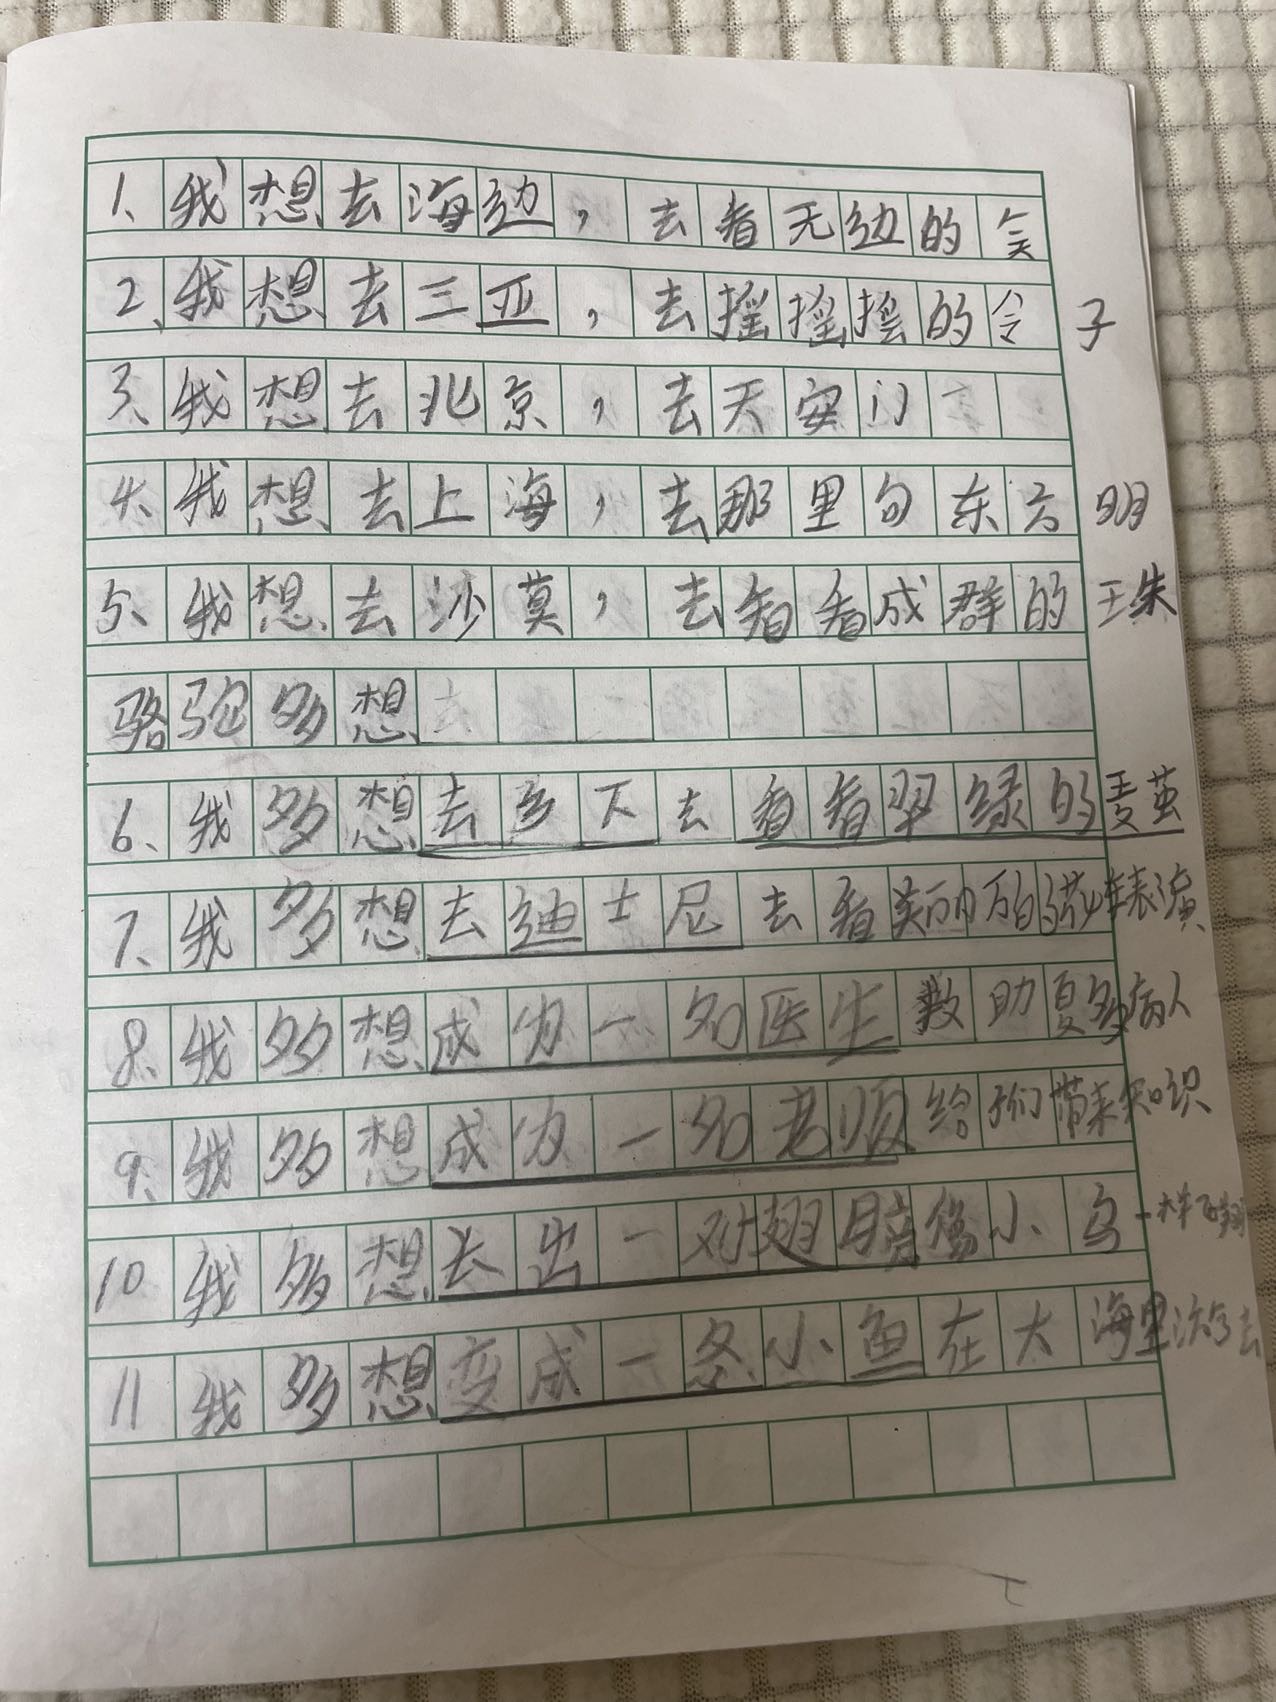 1、我想去海边，去看无边的
2、我想去三亚，去摇摇摇的令子
3、我想去北京，去天安门
4、我想去上海，去那里句东方明
5、我想去沙莫，去看看成群的王朱
骆驼多想
6、我多想去乡下去看看翠绿的麦苗
7、我多想去迪士尼去看美丽的花车表演
8、我多想成为一名医生救助更多病人
9、我多想成为一名老师给我们带来知识
10我多想长出一对翅膀像小鸟一样飞翔
11我多想变成一条小鱼在大海里游去